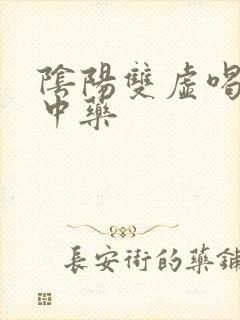 陰陽雙虛喝
中藥
長安街的藥鋪